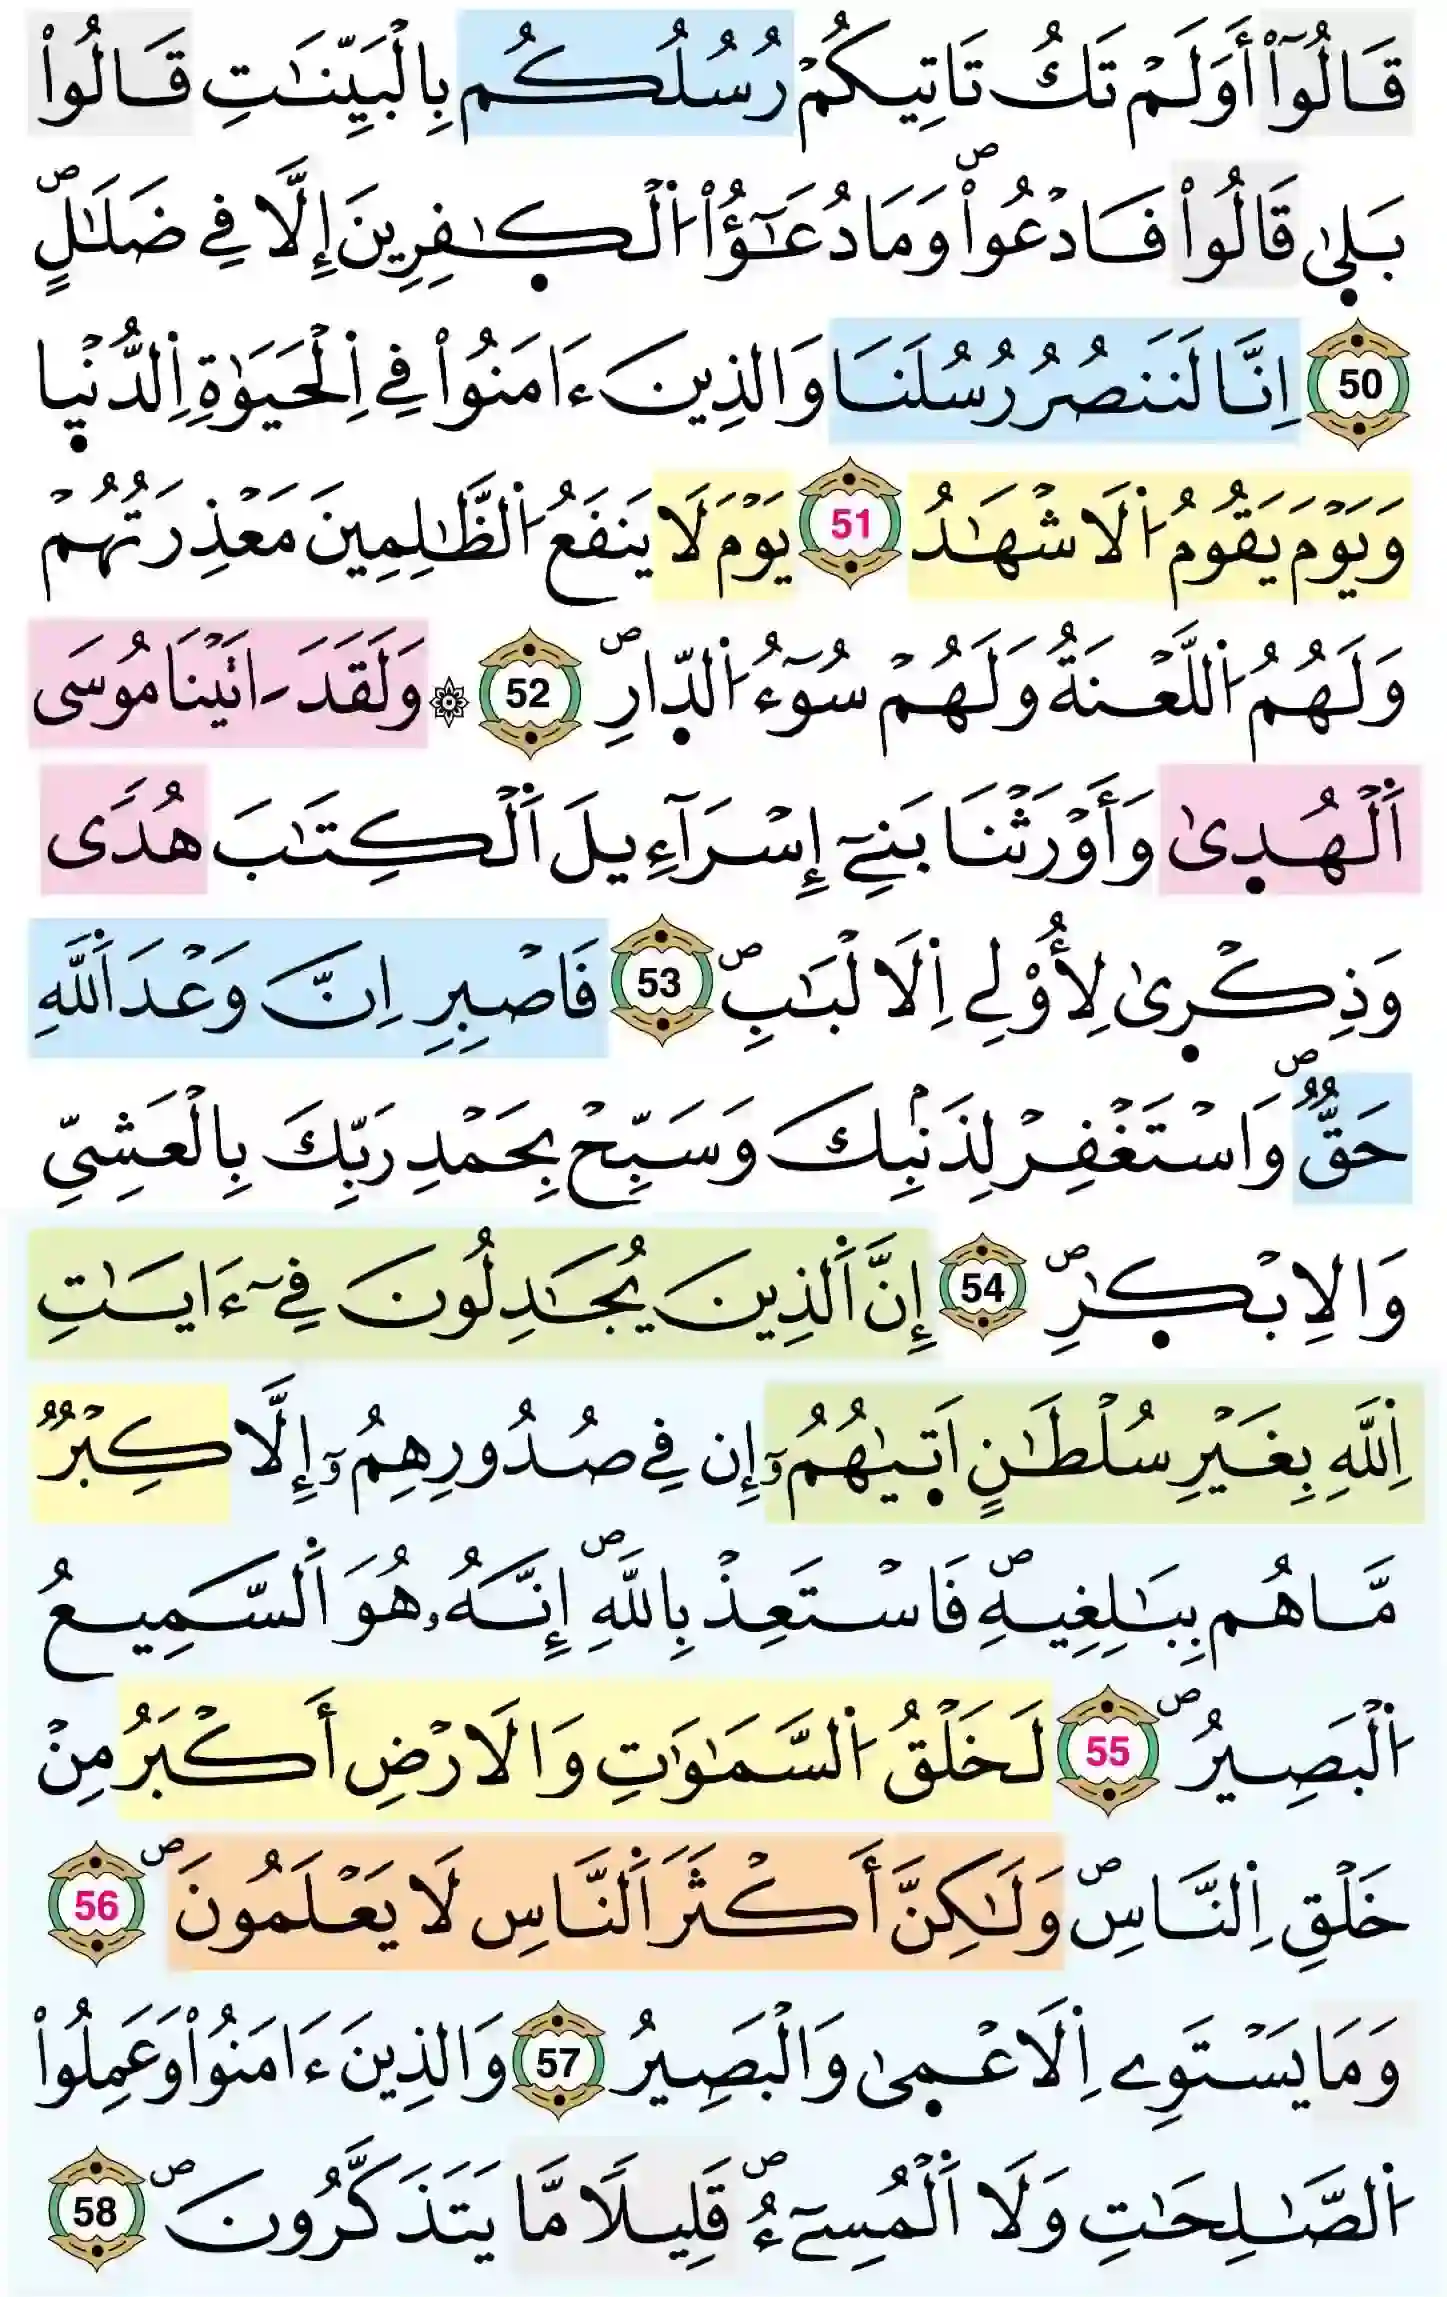 قَالُوٓاْ أَوَلَمْ تَكُ تَاتِيكُمْ رُسُلُكُم بِالْبَيِّنَٰتِ قَالُواْ
بَل۪ىٰ قَالُواْ فَادْعُواْۖ وَمَا دُعَٰٓؤُاْ اُ۬لْكٰ۪فِرِينَ إِلَّا فِے ضَلَٰلٍۖ
50 اِنَّا لَنَنصُرُ رُسُلَنَا وَالذِينَ ءَامَنُواْ فِے اِ۬لْحَيَوٰةِ اِ۬لدُّنْي۪ا
وَيَوْمَ يَقُومُ اُ۬لَاشْهَٰدُ 51 يَوْمَ لَا يَنفَعُ اُ۬لظَّٰلِمِينَ مَعْذِرَتُهُمْ
وَلَهُمُ اُ۬للَّعْنَةُ وَلَهُمْ سُوٓءُ اُ۬لدّ۪ارِۖ 52 ۞ وَلَقَدَ اٰتَيْنَا مُوسَى
اَ۬لْهُد۪ىٰ وَأَوْرَثْنَا بَنِےٓ إِسْرَآءِيلَ اَ۬لْكِتَٰبَ هُدًى
وَذِكْر۪ىٰ لِأُوْلِے اِ۬لَالْبَٰبِۖ 53 فَاصْبِرِ اِنَّ وَعْدَ اَ۬للَّهِ
حَقٌّۖ وَاسْتَغْفِرْ لِذَنۢبِكَ وَسَبِّحْ بِحَمْدِ رَبِّكَ بِالْعَشِيِّ
وَالِابْكٰ۪رِۖ 54 إِنَّ اَ۬لذِينَ يُجَٰدِلُونَ فِےٓ ءَايَٰتِ
اِ۬للَّهِ بِغَيْرِ سُلْطَٰنٍ اَت۪يٰهُمُۥٓ إِن فِے صُدُورِهِمُۥٓ إِلَّا كِبْرٌ
مَّا هُم بِبَٰلِغِيهِۖ فَاسْتَعِذْ بِاللَّهِۖ إِنَّهُۥ هُوَ اَ۬لسَّمِيعُ
اُ۬لْبَصِيرُۖ 55 لَخَلْقُ اُ۬لسَّمَٰوَٰتِ وَالَارْضِ أَكْبَرُ مِنْ
خَلْقِ اِ۬لنَّاسِۖ وَلَٰكِنَّ أَكْثَرَ اَ۬لنَّاسِ لَا يَعْلَمُونَۖ 56
وَمَا يَسْتَوِے اِ۬لَاعْم۪ىٰ وَالْبَصِيرُ 57 وَالذِينَ ءَامَنُواْ وَعَمِلُواْ
اُ۬لصَّٰلِحَٰتِ وَلَا اَ۬لْمُسِےٓءُۖ قَلِيلًا مَّا يَتَذَكَّرُونَۖ 58